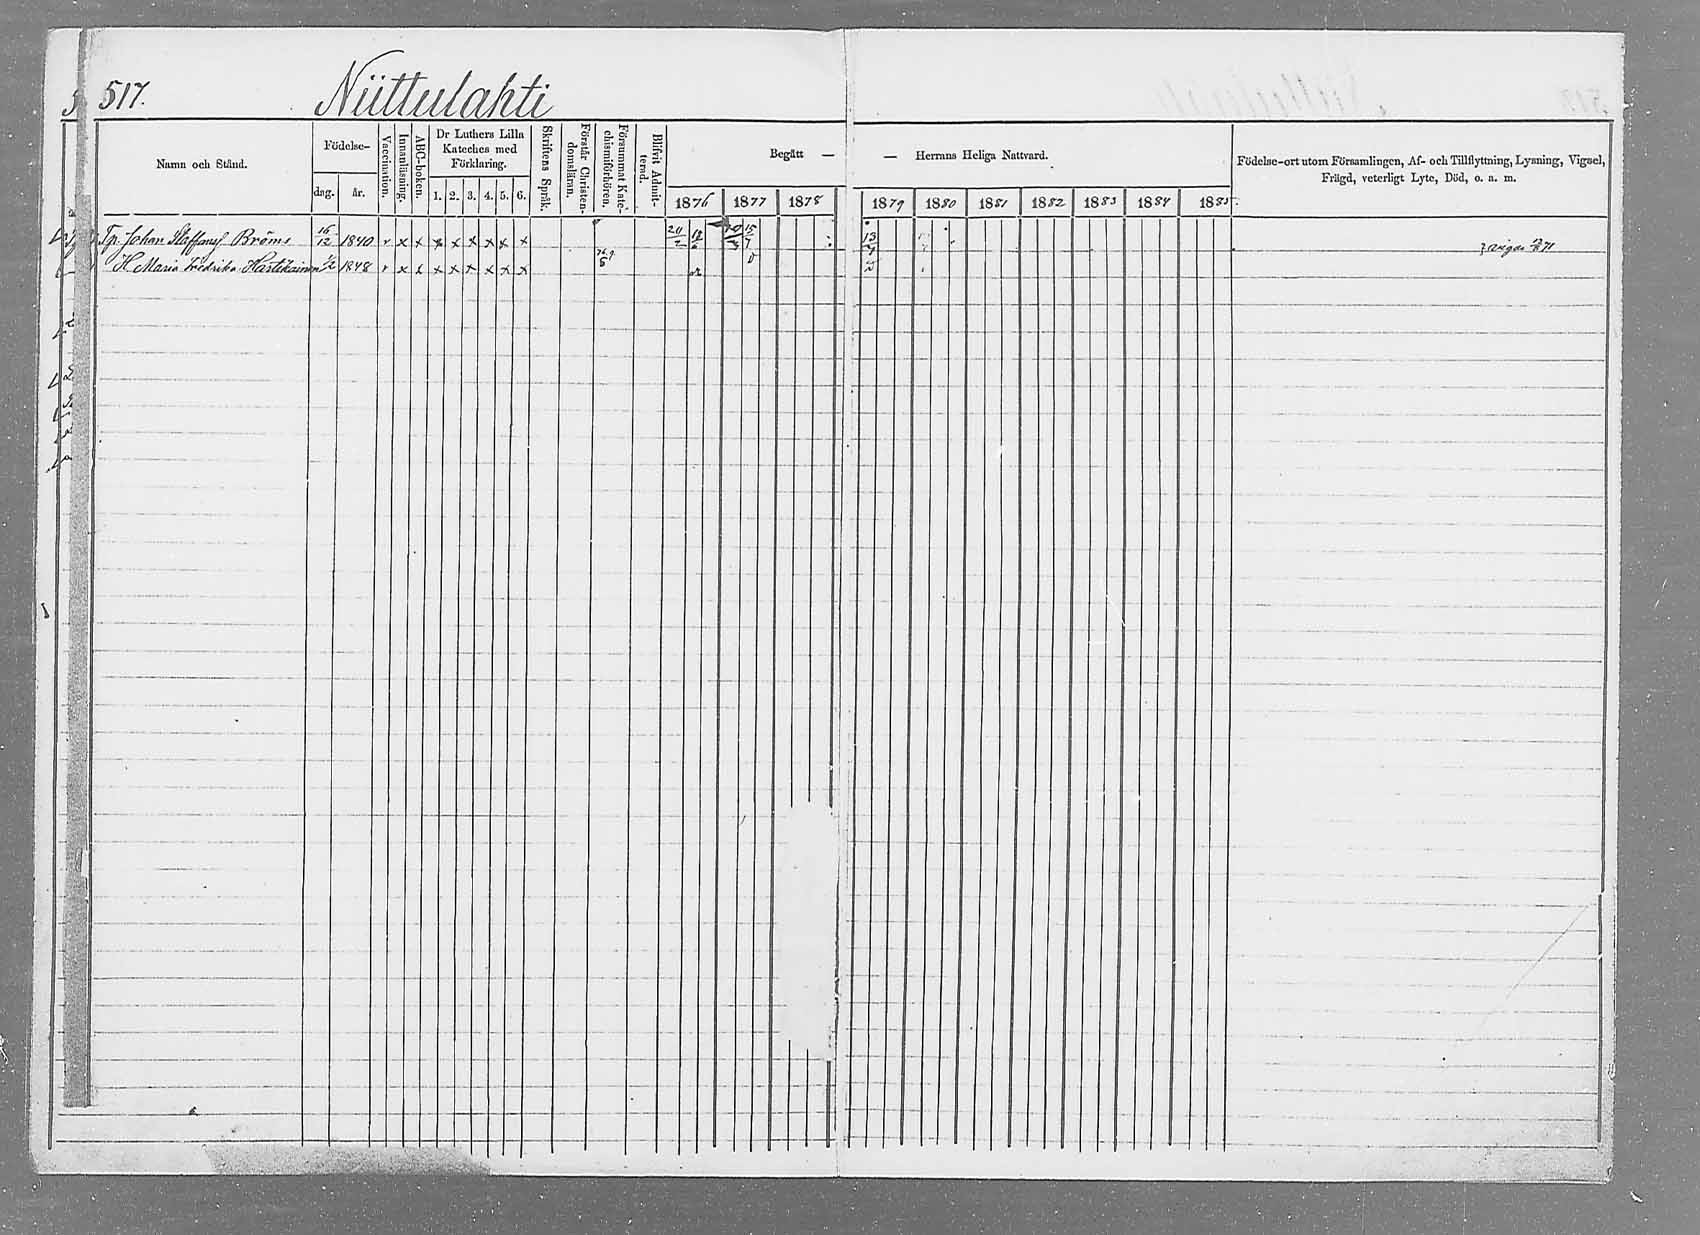 517. Niittulahti
Namn och Stånd.
Födelse-
dag. år.
Vaccination.
Innanläsning.
ABC-boken.
Dr Luthers Lilla Kateches med Förklaring.
1. 2. 3. 4. 5. 6.
Skriftens Språk.
Förstår Christendomsläran.
Försummat Katechismiförhören.
Blifvit Admitterad.
Begått — — Herrans Heliga Nattvard.
1876 1877 1878 1879 1880 1881 1882 1883 1884 1885
Födelse-ort utom Församlingen, Af- och Tillflyttning, Lysning, Vigsel,
Frägd, veterligt Lyte, Död, o. a. m.
Tp. Johan Staffanss Bröms 16/12 1840 v x x x x x x x x 15/7 13/4
H. Maria Fredrika Hartikainen 1848 v x x x x x x x x